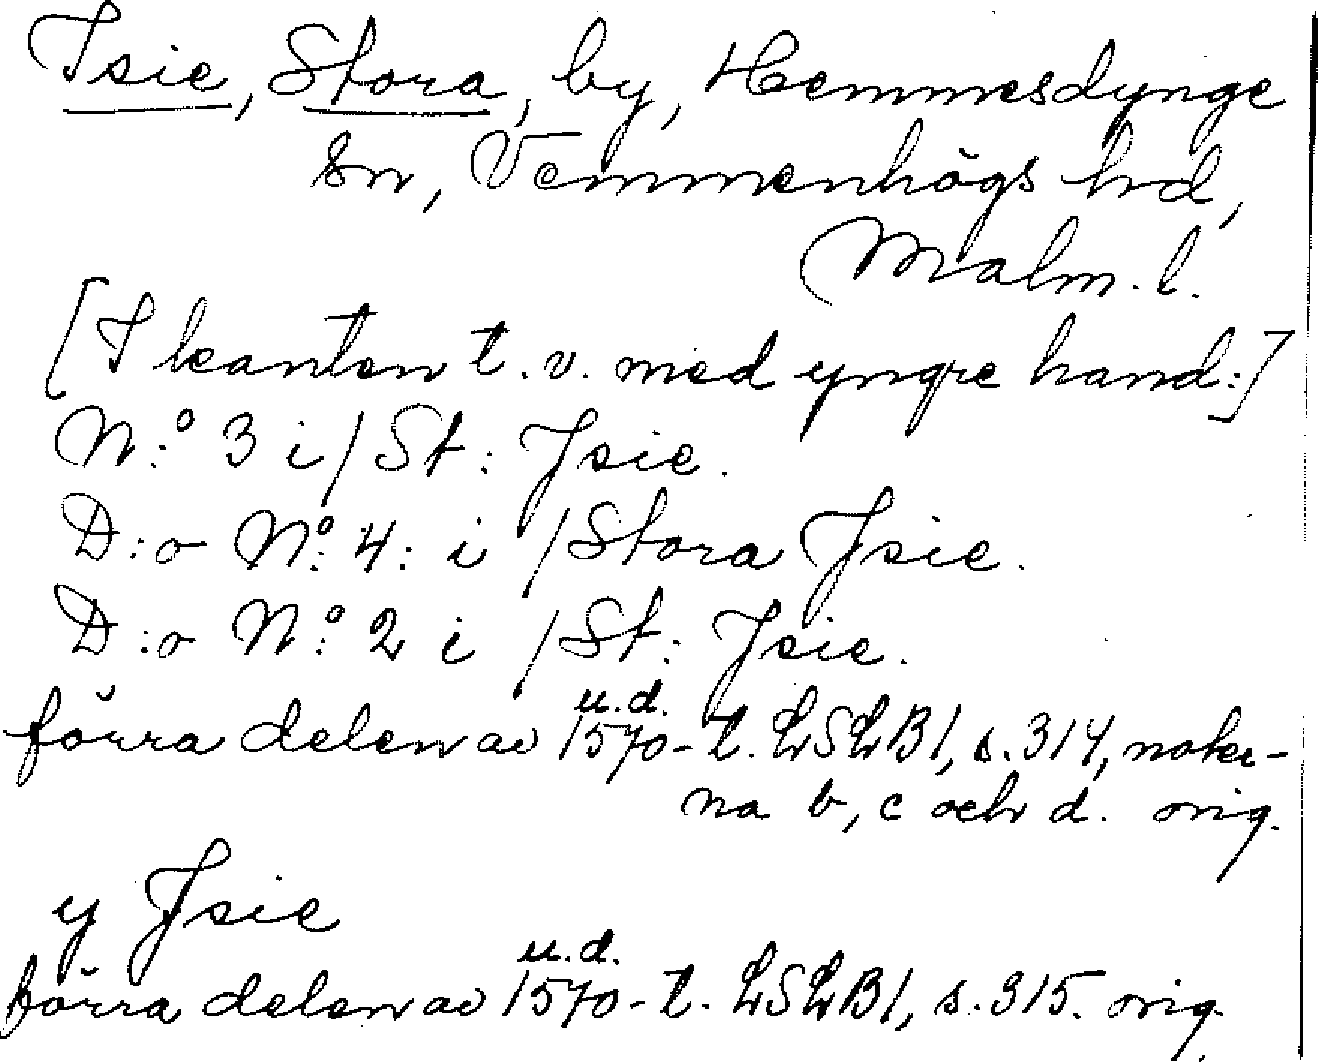 Isie, Stora, by, Hemmesdynge
sn, Vemmenhögs hd,
Malm. l.
[I kanten t.v. med yngre hand:]
N:o 3 i / St: Jsie.
D:o No: 4: i / Stora Jsie.
D:o N:o 2 i / St: Jsie.
förra delen av 1570-t. LSLB1, s. 314, noter-
u.d.
na b, c och d. orig.
y Jsie
förra delen av 1570-t. LSLB1, s. 315. orig.
u.d.